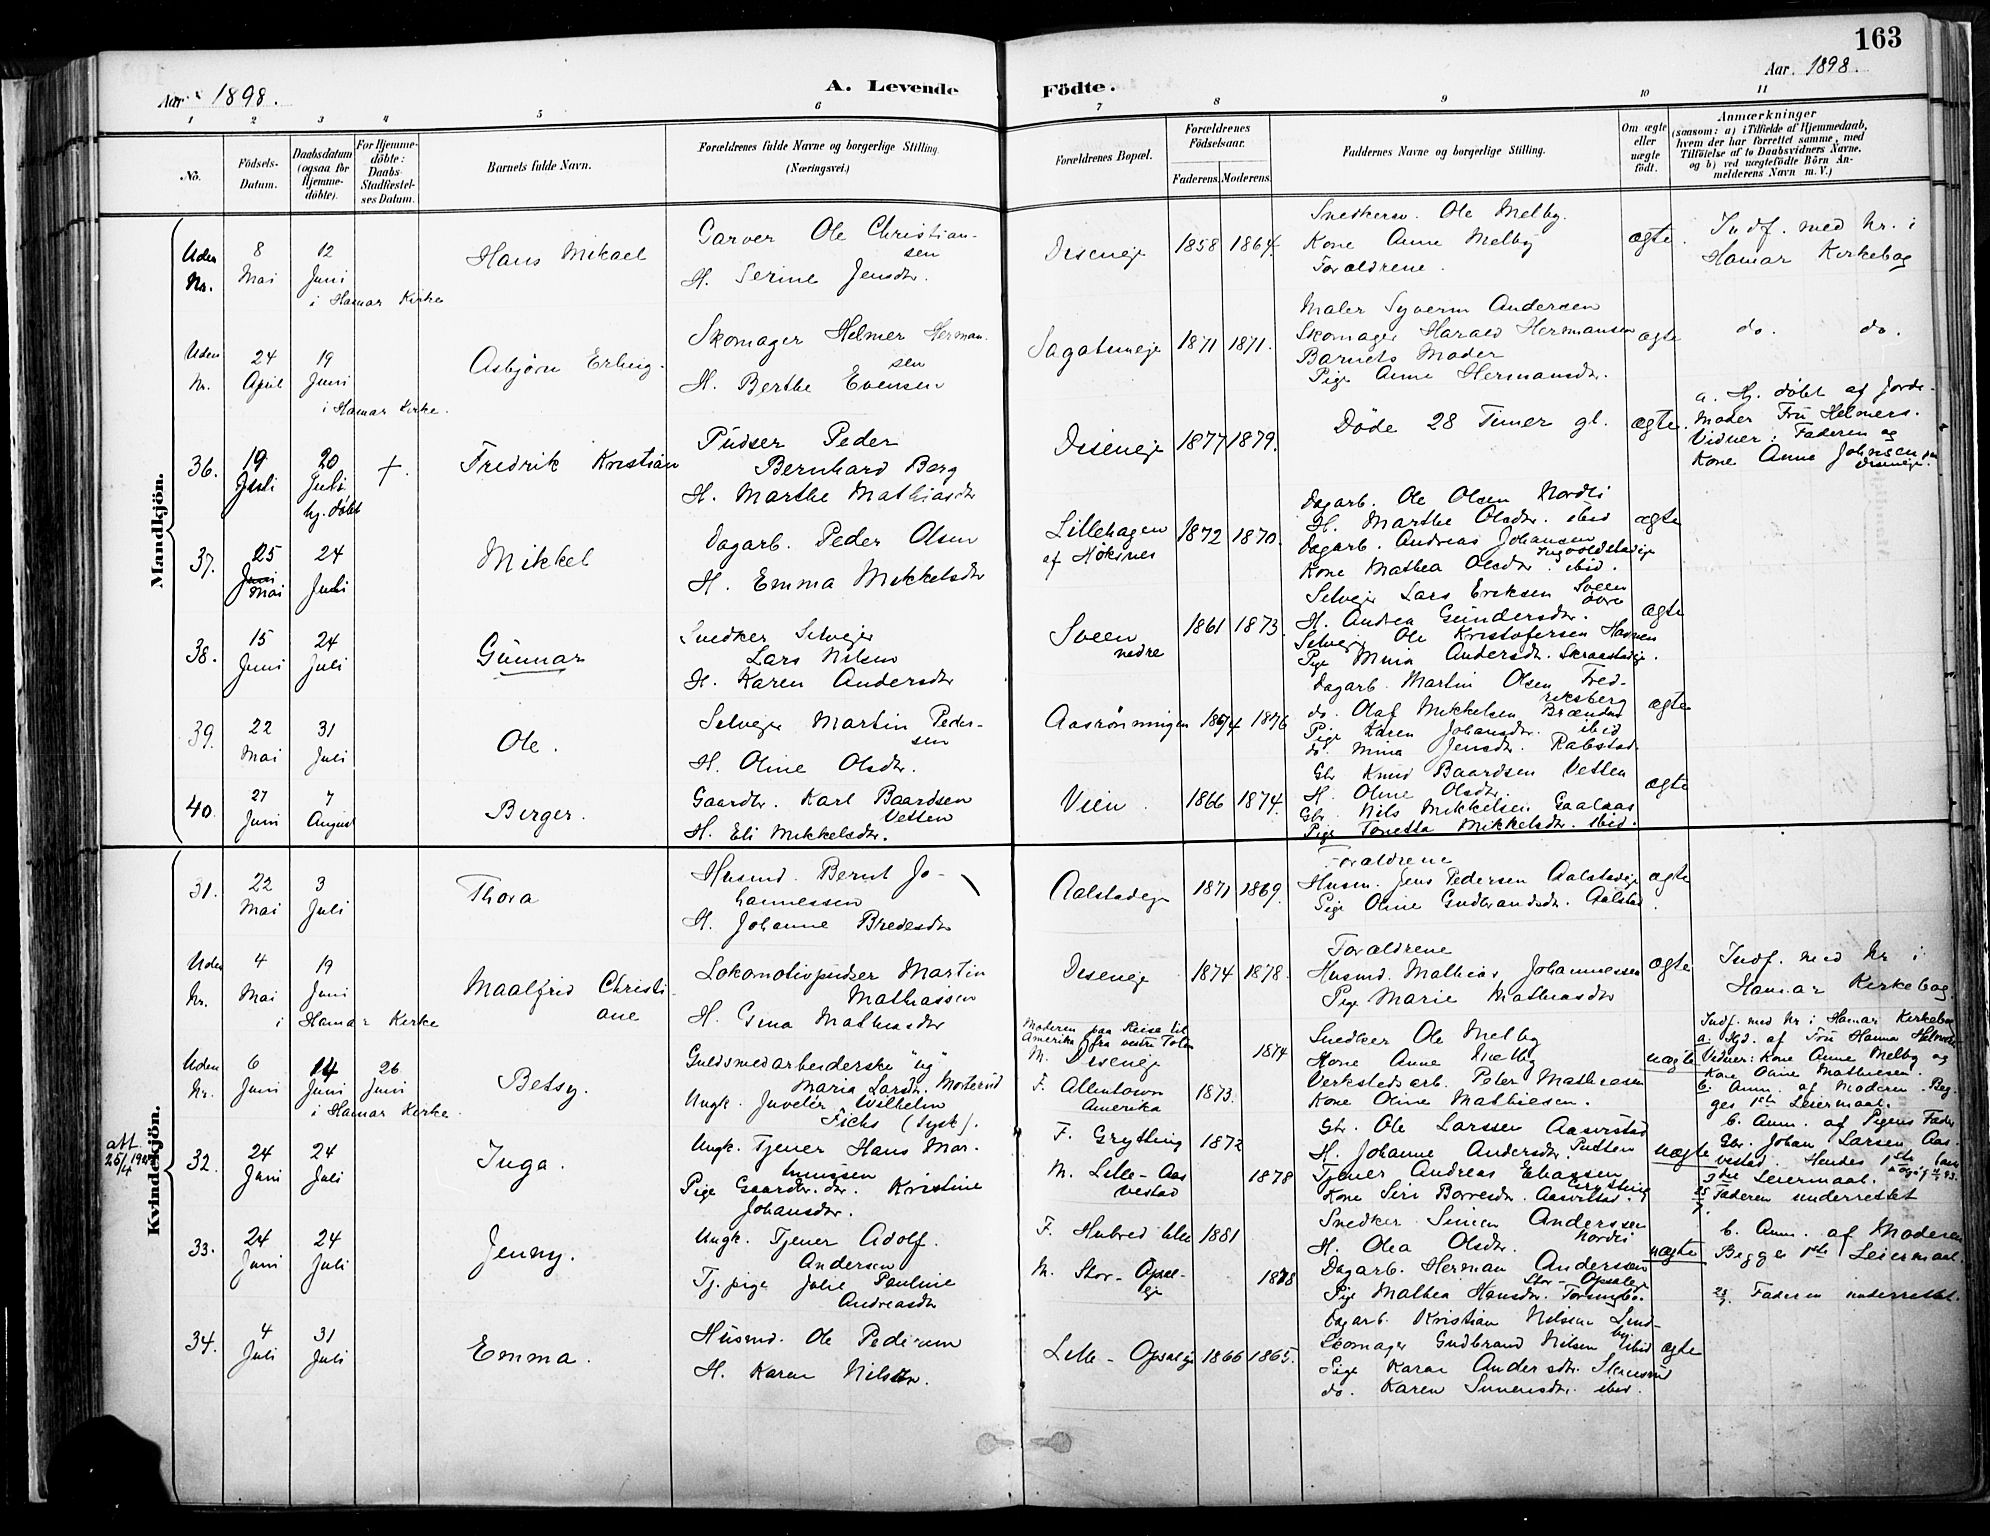 163
Aar 1898.
A. Levende
Födte.
Aar. 1898.
1
2
3
4
5
6
7
8
9
10
11
No.
Födsels-
Datum.
Daabsdatum
(ogsaa for
Hjemme-
döbte).
For Hjemme-
döbte:
Daabs-
Stadfæstel-
ses Datum.
Barnets fulde Navn.
Forældrenes fulde Navne og borgerlige Stilling.
(Næringsvei.)
Forældrenes Bopæl.
Forældrenes
Födselsaar.
Faderens.
Moderens.
Faddernes Navne og borgerlige Stilling.
Om ægte
eller
uægte
födt.
Anmærkninger
(saasom: a) i Tilfælde af Hjemmedaab,
hvem der har forrettet samme, med
Tilföielse af to Daabsvidners Navne.
og b) ved uægtefödte Börn An-
melderens Navn m. V.)
Mandkjön.
Uden
Nr.
8
Mai
12
Juni
i Hamar Kirke
Hans Mikael
Garver Ole Christian-
sen
H. Serine Jensdtr.
Diseneje
1858
1864.
Snedkersv. Ole Melby.
Kone Anne Melby
Forældrene.
ægte.
Indf. med Nr. i
Hamar Kirkebog
Uden
Nr.
24
April
19
Juni
i Hamar Kirke.
Asbjørn Erling.
Skomager Helmer Herman-
sen
H. Berthe Evensen
Sagatuneje
1871
1871.
Maler Syverin Andersen
Skomager Harald Hermansen
Barnets Moder
Pige Anne Hermansdtr.
ægte
do. do.
36.
19
Juli
20
Juli
hj. døbt
+.
Fredrik Kristian
Pudser Peder
Bernhard Berg
H. Marthe Mathiasdtr
Diseneje
1877
1879.
Døde 28 Timer gl.
ægte.
a. Hj. døbt af Jorde-
moder Fru Helmers.
Vidner: Faderen og
Kone Anne Johnsen
Diseneje.
37.
25
Juni
Mai
24
Juli
Mikkel
Dagarb. Peder Olsen
H. Emma Mikkelsdtr
Lillehagen
af Høksnes
1872
1870.
Dagarb. Ole Olsen Nordli
H. Marthe Olsdtr. ibid
Dagarb. Andreas Johansen
Kone Mathea Olsdtr. ibid.
ægte
38.
15
Juni
24
Juli
Gunnar
Snedker Selvejer
Lars Nilsen
H. Karen Andersdtr
Sveen
nedre
1861
1873.
Selvejer Lars Eriksen Sveen
øvre
H. Andrea Gundersdtr.
Selvejer Ole Kristofersen
Pige Mina Andersdtr. Skraastadeje.
ægte
39.
22
Mai
31
Juli
Ole.
Selvejer Martin Peder-
sen
H. Oline Olsdtr.
Aasrønningen
1874
1876
Dagarb. Martin Olsen Fred-
riksberg
do. Olaf Mikkelsen Brænden
Pige Karen Johansdtr. ibid
do. Mina Jensdtr. Rabstad
ægte
40.
27
Juni
7
August
Berger.
Gaardbr. Karl Baardsen
Vetten
H. Eli Mikkelsdtr.
Vien.
1866
1874.
Gbr Knud Baardsen Vetten
H. Oline Olsdtr.
Gbr. Nils Mikkelsen Gaalaas
Pige Tonetta Mikkelsdtr. ibid.
ægte
Kvindekjön.
31.
22
Mai
3
Juli
Thora
Husmd. Bernt Jo-
hannessen
H. Johanne Bredesdtr
Aalstadeje
1871
1869.
Forældrene
Husm. Jens Pedersen Aalstadeje
Pige Oline Gudbrandsdtr. Aalstad.
ægte
Uden
Nr.
4
Mai
19
Juni
i Hamar Kirke
Maalfrid Christi-
ane
Lokomotivpudser Martin
Mathiassen
H. Gina Mathiasdtr
Diseneje
1874
1878.
Forældrene
Husmd. Mathias Johannessen
Pige Marie Mathiasdtr
ægte
Indf. med Nr i
Hamar Kirkebog.
Uden
Nr.
6
Juni
14
Juni
26
Juni
i Hamar Kirke.
Betsy.
Guldsmedarbeiderske ug
Maria Larsdtr. Mosterud
Ungk. Juveler Wilhelm
Fichs (Tysk).
Moderen paa Reise til
Amerika fra vestre Toten
M. Diseneje
F. Allentown
Amerika
1873.
1874
Snedker Ole Melby
Kone Anne Melby
Verkstedarb. Peter Mathiesen
Kone Oline Mathiesen.
uægte
Indf. med Nr i Hamar Kirkebog
a. Hjd. af Fru Hanna Helmers
Vidner: Kone Anne Melby og
Kone Oline Mathiesen.
b. Anm. af Moderen. Beg-
ges 1ste Leiermaal.
att.
25/4 1924
32.
24
Juni
24
Juli
Inga.
Ungk. Tjener Hans Mar-
Pige Gaardbr. dtr. Kristine
Johansdtr.
F. Grytting
M. Lille-Aas
vestad
1872
1878
Gbr. Ole Larssen Aasvestad
H. Johanne Andersdtr. Putten
Tjener Andreas Eliassen
Grytting
Kone Siri Borresdtr. Aasvestad.
uægte
b. Anm. af Pigens Fader
Gbr. Johan Larsen Aas-
vestad. Hendes 1ste
3die Leiermaal.
25/7 Faderen underrettet
33.
24
Juni
24
Juli
Jenny.
Ungk. Tjener Adolf
Andersen
Tj. pige Julie Pauline
Andreasdtr
F. Hubred lille
M. Stor-Opsal-
eje
1881
1878
Snedker Simen Anderssen
Nordli
H. Olea Olsdtr.
Dagarb. Herman Anderssen
Stor-Opsaleje
Pige Mathea Hansdtr.
uægte
b. Anm. af Moderen
Begges 1ste Leiermaal.
25/7 Faderen underrettet.
34.
4
Juli
31
Juli
Emma.
Husmd. Ole Pedersen
H. Karen Nilsdtr.
Lille-Opsaleje
1866
1865.
Dagarb. Kristian Nilsen Lind-
by
Skomager Gudbrand Nilsen ibid
Pige Karen Andersdtr.
do. Karen Simensdtr. ibid.
ægte